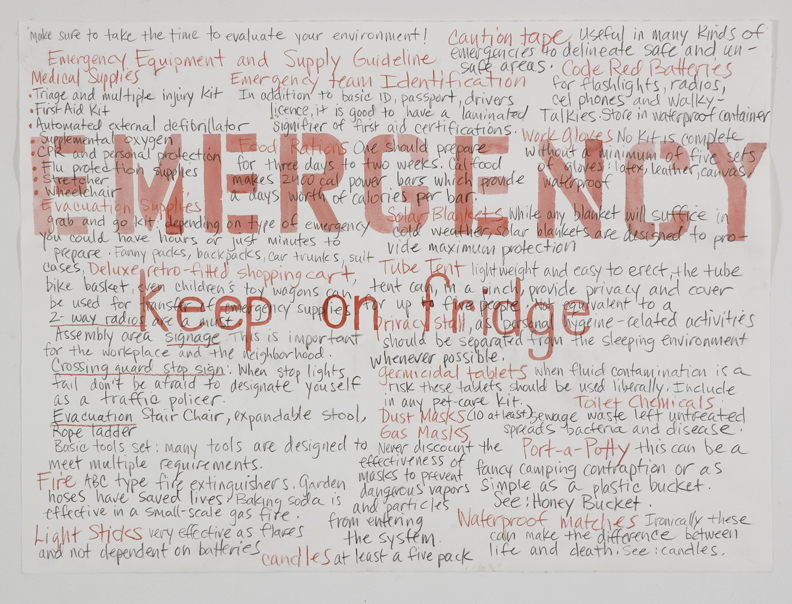 Make sure to take the time to evaluate your environment!
Emergency Equipment and Supply Guideline
Medical Supplies
• Triage and multiple injury Kit
• First Aid Kit
• Automated external defibrillator
supplemental oxygen
CPR and personal protection
Flu protection supplies
stretcher
wheelchair
Evacuation Supplies
grab and go kit: depending on type of emergency
you could have hours or just minutes to
prepare. Fanny packs, backpacks, car trunks, suit
cases, Deluxe retro-fitted shopping cart,
bike basket, even children's toy wagons can
be used for transfer emergency supplies
2-way radios are a must
Assembly area signage This is important
for the workplace and the neighborhood.
Crossing guard stop sign: When stop lights
fail don't be afraid to designate youself
as a traffic policer.
Evacuation Stair Chair, expandable stool,
Rope ladder
Basic tools set: many tools are designed to
meet multiple requirements.
Fire ABC type fire extinguishers. Garden
hoses have saved lives. Baking soda is
effective in a small-scale gas fire.
Light Sticks very effective as flares
and not dependent on batteries
candles at least a five pack
Emergency team Identification
In addition to basic ID, passport, drivers
licence, it is good to have a laminated
signifier of first aid certifications.
Food Rations One should prepare
for three days to two weeks. Ufood
makes 2400 cal power bars which provide
a days worth of calories per bar.
caution tape Useful in many kinds of
emergencies to delineate safe and un-
safe areas. Code Red Batteries
for flashlights, radios,
cel phones and walky-
Talkies. Store in waterproof container
Work Gloves No Kit is complete
without a minimum of five sets
of gloves: latex, leather, canvas,
waterproof
Solar Blankets While any blanket will suffice in
cold weather, solar blankets are designed to pro-
vide maximum protection
Tube Tent lightweight and easy to erect, the tube
tent can in a pinch provide privacy and cover
for up to five people. Not equivalent to a
Privacy Stall, as personal hygeine-related activities
should be separated from the sleeping environment
whenever possible.
Germicidal tablets when fluid contamination is a
risk these tablets should be used liberally. Include
in any pet-care kit. Toilet Chemicals:
Dust Masks (10 at least) sewage waste left untreated
spreads bacteria and disease.
Gas Masks
Never discount the
effectiveness of
masks to prevent
dangerous vapors
and particles
from entering
the system.
Port-a-Potty this can be a
fancy camping contraption or as
simple as a plastic bucket.
See: Honey Bucket.
Waterproof matches Ironically these
can make the difference between
life and death. See: candles.
EMERGENCY
keep on fridge